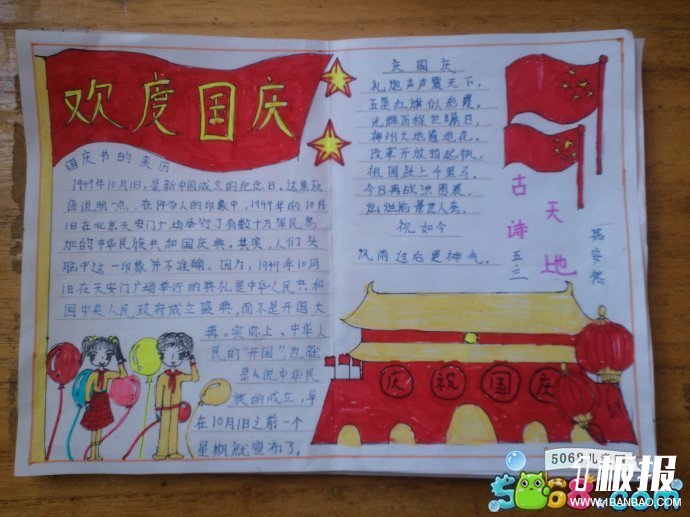 欢度国庆
国庆节的来历
1949年10月1日,是新中国成立的纪念日。这里应
该说明一点,在许多人的印象中,1949年的10月
1日在北京天安门广场举行了有数十万军民参
加的中华民族共和国庆典。其实,人们头
脑中这一印象并不准确。因为,1949年10月
1日在天安门广场举行的典礼是中华人民共和
国中央人民政府成立盛典,而不是开国大
典。实际上,中华人
民的“开国”也就
是说中华民
族的成立,早
在10月1日之前一个
星期就宣布了。
庆国庆
礼炮声声震天下,
五星红旗似彩霞。
光辉历程世瞩目,
神州大地遍地花。
改革开放
祖国跃上千里马。
今日再战洪图展,
祝如今
风雨过后更神气。
古诗
天地
五三
庆祝国庆
5068儿童网
5068.com
板报
WWW.1BANBAO.COM